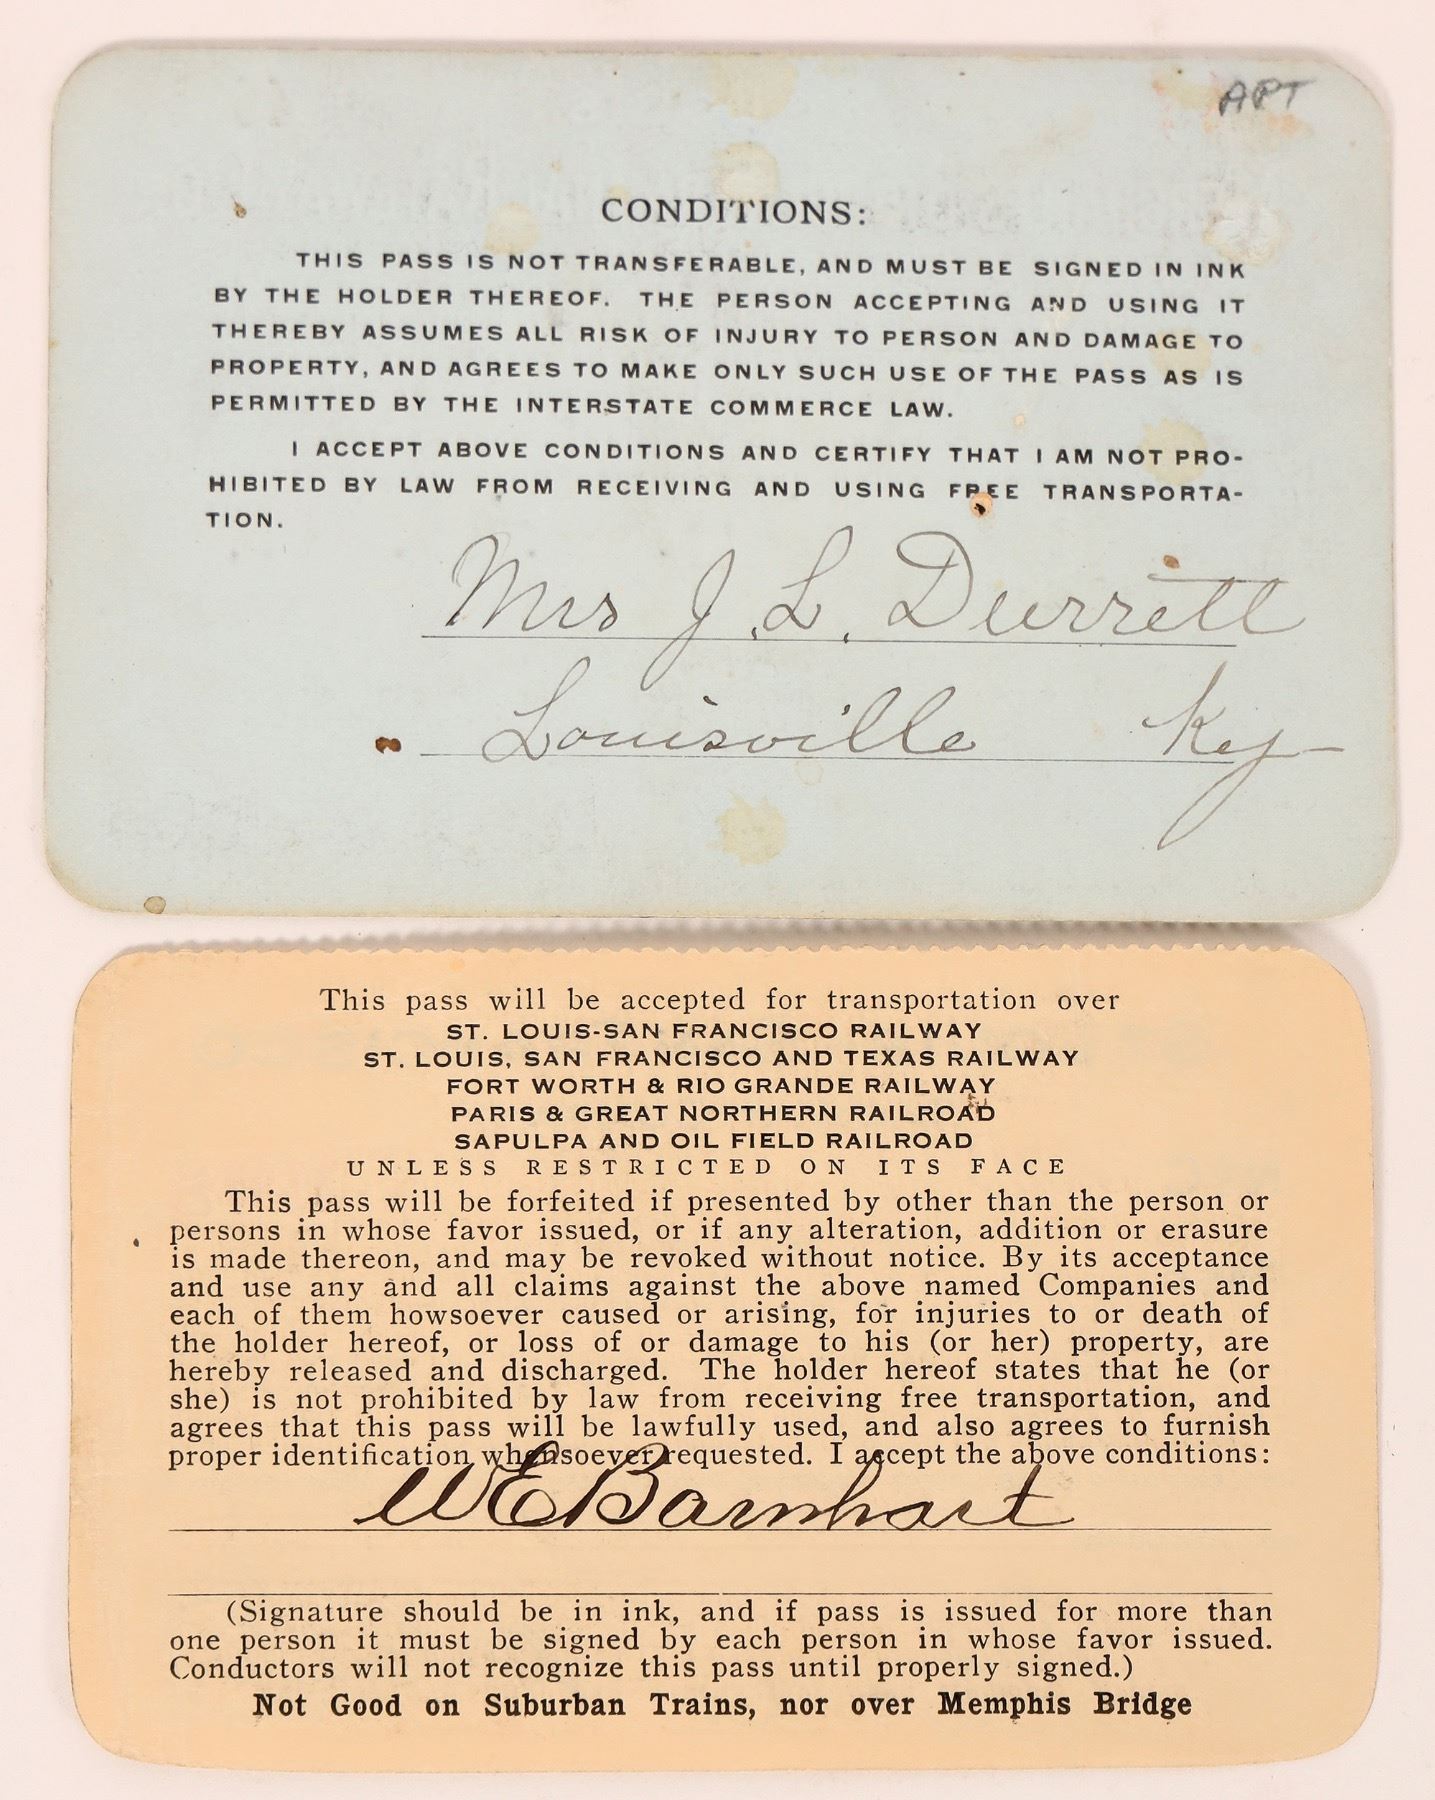 APT
CONDITIONS:
THIS PASS IS NOT TRANSFERABLE, AND MUST BE SIGNED IN INK
BY THE HOLDER THEREOF. THE PERSON ACCEPTING AND USING IT
THEREBY ASSUMES ALL RISK OF INJURY TO PERSON AND DAMAGE TO
PROPERTY, AND AGREES TO MAKE ONLY SUCH USE OF THE PASS AS IS
PERMITTED BY THE INTERSTATE COMMERCE LAW.
I ACCEPT ABOVE CONDITIONS AND CERTIFY THAT I AM NOT PRO-
HIBITED BY LAW FROM RECEIVING AND USING FREE TRANSPORTA-
TION.
Mrs J. L. Durrett
Louisville Ky
This pass will be accepted for transportation over
ST. LOUIS-SAN FRANCISCO RAILWAY
ST. LOUIS, SAN FRANCISCO AND TEXAS RAILWAY
FORT WORTH & RIO GRANDE RAILWAY
PARIS & GREAT NORTHERN RAILROAD
SAPULPA AND OIL FIELD RAILROAD
UNLESS RESTRICTED ON ITS FACE
This pass will be forfeited if presented by other than the person or
persons in whose favor issued, or if any alteration, addition or erasure
is made thereon, and may be revoked without notice. By its acceptance
and use any and all claims against the above named Companies and
each of them howsoever caused or arising, for injuries to or death of
the holder hereof, or loss of or damage to his (or her) property, are
hereby released and discharged. The holder hereof states that he (or
she) is not prohibited by law from receiving free transportation, and
agrees that this pass will be lawfully used, and also agrees to furnish
proper identification whensoever requested. I accept the above conditions:
W E Barnhart
(Signature should be in ink, and if pass is issued for more than
one person it must be signed by each person in whose favor issued.
Conductors will not recognize this pass until properly signed.)
Not Good on Suburban Trains, nor over Memphis Bridge